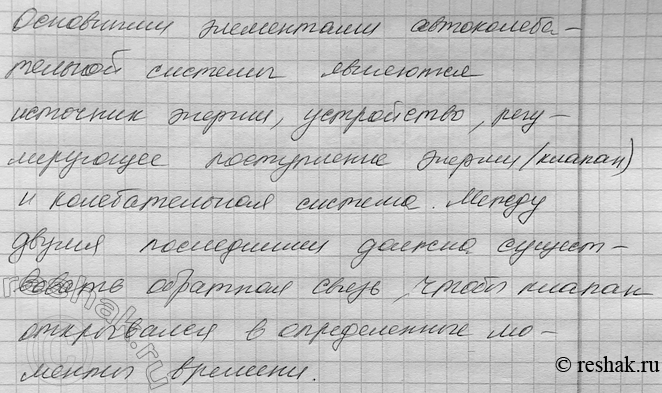 Основными элементами автоколеба-
тельной системы являются
источник энергии, устройство, регу-
лирующее поступление энергии (клапан)
и колебательная система. Между
двумя последними должна сущест-
вовать обратная связь, чтобы клапан
открывался в определенные мо-
менты времени.
reshak.ru
© reshak.ru